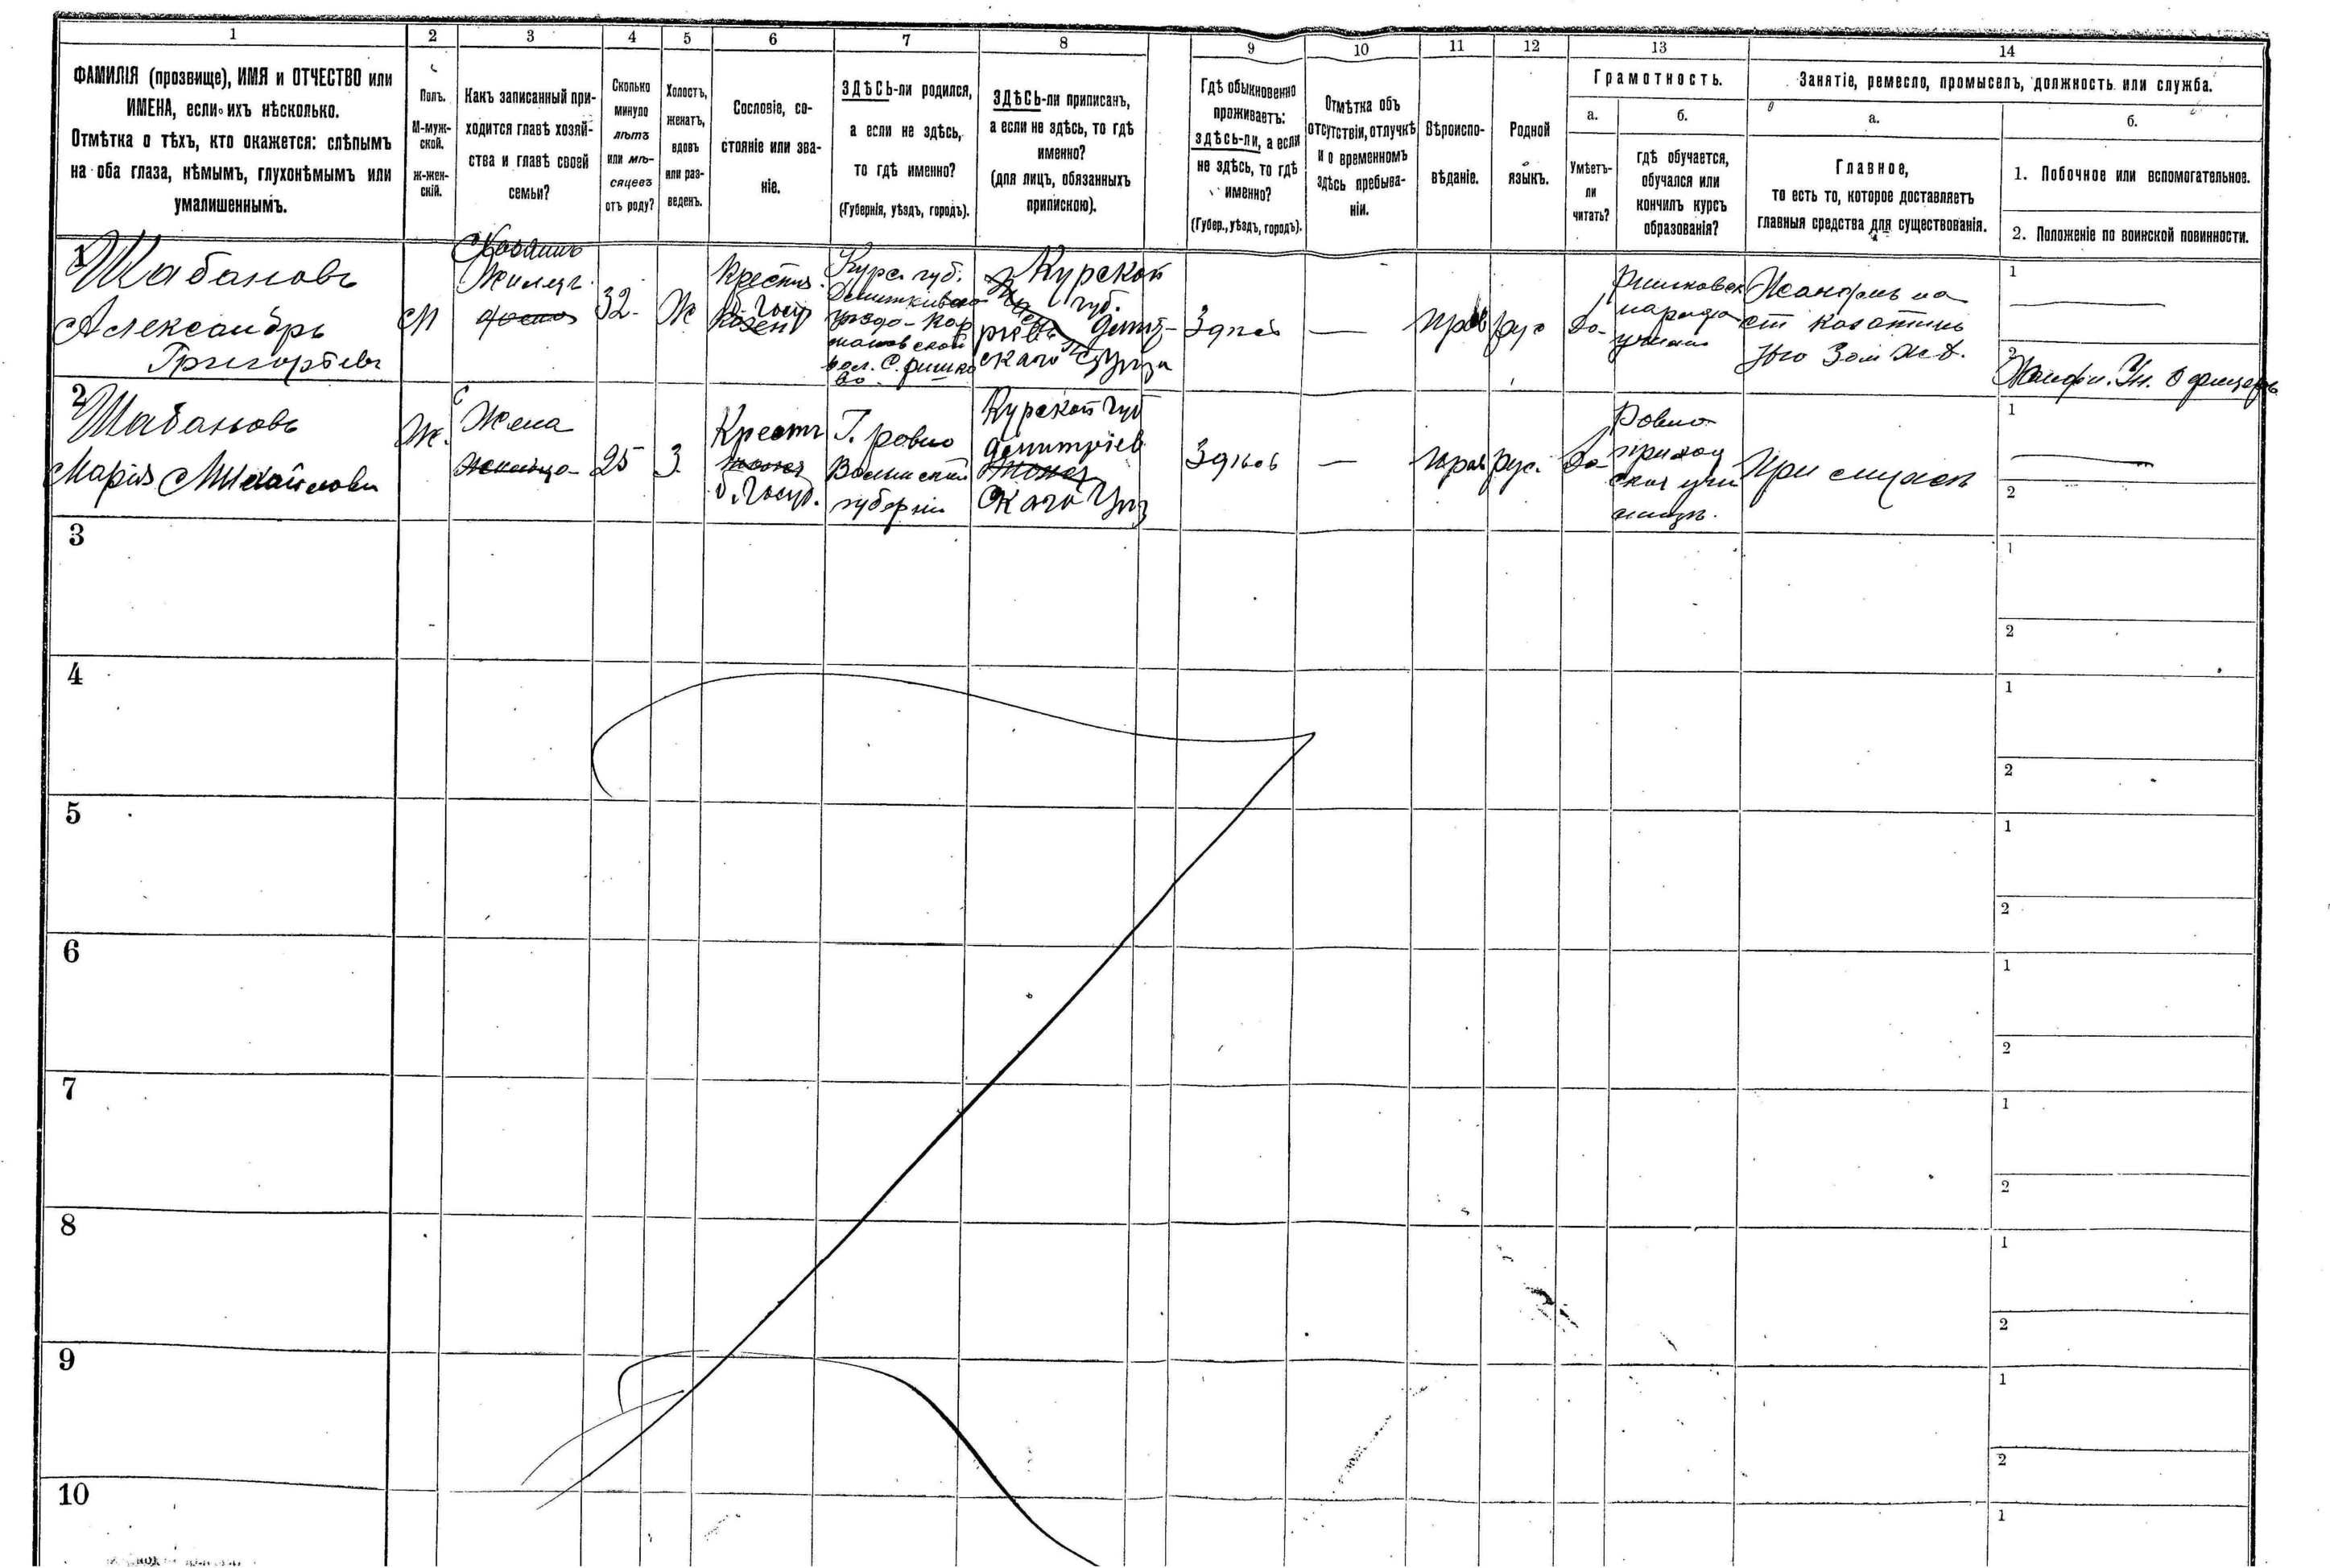 1
2
3
4
5
6
7
8
9
10
11
12
13
14
ФАМИЛІЯ (прозвище), ИМЯ и ОТЧЕСТВО или
ИМЕНА, если ихъ нѣсколько.
Отмѣтка о тѣхъ, кто окажется: слѣпымъ
на оба глаза, нѣмымъ, глухонѣмымъ или
умалишеннымъ.
Полъ.
М-муж-
ской.
ж-жен-
скій.
Какъ записанный при-
ходится главѣ хозяй-
ства и главѣ своей
семьи?
Сколько
минуло
лѣтъ
или мѣ-
сяцевъ
отъ роду?
Холостъ,
женатъ,
вдовъ
или раз-
веденъ.
Сословіе, со-
стояніе или зва-
ніе.
ЗДѢСЬ-ли родился,
а если не здѣсь,
то гдѣ именно?
(Губернія, уѣздъ, городъ).
ЗДѢСЬ-ли приписанъ,
а если не здѣсь, то гдѣ
именно?
(для лицъ, обязанныхъ
припискою).
Гдѣ обыкновенно
проживаетъ:
здѣсь-ли, а если
не здѣсь, то гдѣ
именно?
(Губер., уѣздъ, городъ).
Отмѣтка объ
отсутствіи, отлучкѣ
и о временномъ
здѣсь пребыва-
ніи.
Вѣроиспо-
вѣданіе.
Родной
языкъ.
Грамотность.
а.
Умѣетъ-
ли
читать?
б.
гдѣ обучается,
обучался или
кончилъ курсъ
образованія?
Занятіе, ремесло, промыселъ, должность или служба.
а.
Главное,
то есть то, которое доставляетъ
главныя средства для существованія.
б.
1. Побочное или вспомогательное.
2. Положеніе по воинской повинности.
1
Шабановъ
Александръ
Григорьевъ
М
Хозяинъ
Жилецъ
32
Ж
Крестья.
б. Госуд
Курс. губ.
уѣзда
вол. С. Ришко
во
Курской
губ.
Дмит-
ріев
скаго Уѣзда
Здѣсь
—
прав
рус
Да
Ришковск
народ
учил
Жандармъ на
ст Казатинъ
Юго Зап Ж. д.
1
2
Жанд. Ун. Офицеръ
2
Шабановъ
Марія Михайлова
Ж.
Жена
25
З
Крест
б. Госуд.
Г. Ровно
Волынской
губерніи
Курской губ
Дмитріев
скаго Уѣз
Здѣсь
—
прав
рус.
Да
Ровно
приход
ское учи
лище.
При мужѣ
1
2
3
1
2
4
1
2
5
1
2
6
1
2
7
1
2
8
1
2
9
1
2
10
1